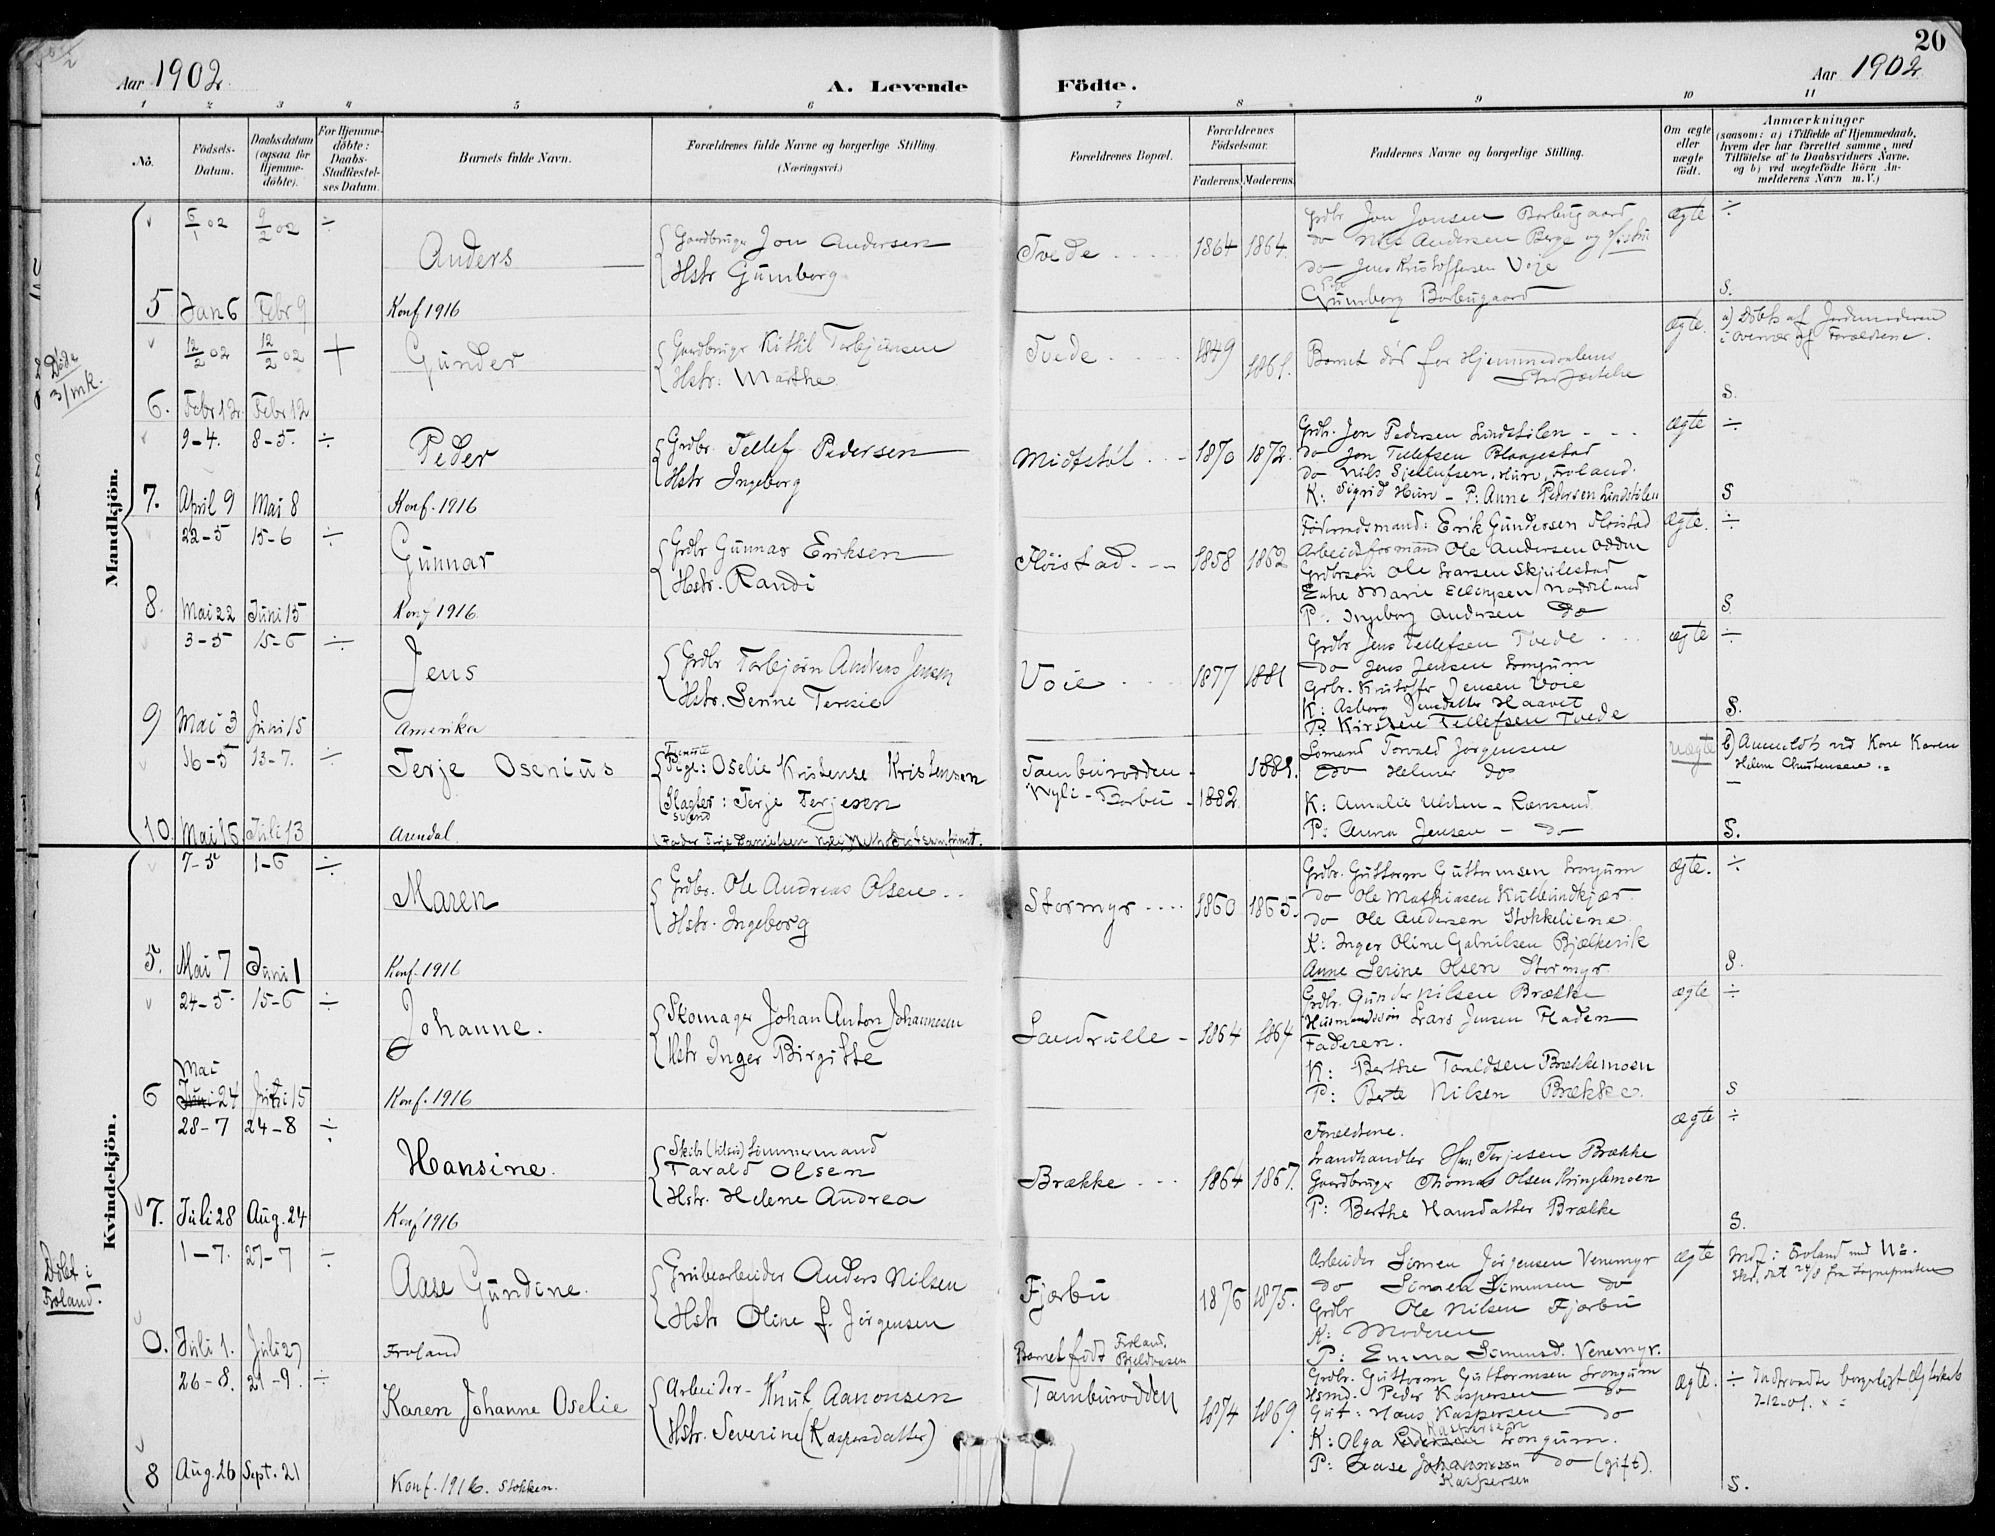 20
Aar 1902.
A. Levende Födte.
Aar 1902
1 2 3 4 5 6 7 8 9 10 11
No.
Födsels-Datum.
Daabsdatum (ogsaa for Hjemme-döbte).
For Hjemme-döbte: Daabs-Stadfæstel-ses Datum.
Barnets fulde Navn.
Forældrenes fulde Navne og borgerlige Stilling. (Næringsvei.)
Forældrenes Bopæl.
Forældrenes Födselsaar.
Faderens. Moderens.
Faddernes Navne og borgerlige Stilling.
Om ægte eller uægte födt.
Anmærkninger
(saasom: a) i Tilfælde af Hjemmedaab,
hvem der har forrettet samme, med
Tilföielse af to Daabsvidners Navne,
og b) ved uægtefödte Börn An-
melderens Navn m.V.)
Mandkjön.
6/1 02 9/2 02 ÷
Anders
Gaardbruger Jon Andersen
Hstr Gumborg
Tvede 1864 1864
Grdbr Jon Jonsen Borbugaard
do Nils Andersen Berge og Hustru
do Jens Kristoffersen Voje
Gumborg Borbugaard
ægte ÷
S.
5 Jan 6 Febr 9 Konf 1916
12/2 02 12/2 02 +
Gunder
Gaardbruger Kittil Torbjörnsen
Hstr: Marthe
Tvede 1849 1861.
Barnet död før Hjemmedaabens
Stadfæstelse
ægte.
a) Döbt af Jordemoderen
i Overvær af Forældrene.
S.
Döde
3/mk.
6. Febr 12. Febr 12
9-4. 8-5. ÷
Peder
Grdbr. Tellef Pedersen
Hstr Ingeborg
Midtstöl 1870 1872.
Grdbr. Jon Pedersen Lindstölen
do Jon Tellefsen Blaagestad
do Nils Sjellufsen, Hurv, Froland.
K: Sigrid Hurv - P: Anne Pedersen Lindstölen
ægte ÷
S
7. April 9 Mai 8 Konf. 1916
22-5 15-6 ÷
Gunnar
Grdbr Gunnar Eriksen
Hstr. Randi
Flöistad 1858 1862
Föderaadsmand: Erik Gundersen Flöistad
Arbeidsformand Ole Andersen Odden
Grdbrsön Ole Larsen Skjulestad
Enke Marie Ellingsen Nödeland
P. Ingeborg Andersen do
Ægte. ÷
S
8. Mai 22 Juni 15 Konf 1916
3-5 15-6 ÷
Jens
Grdbr Torbjörn Andreas Jensen
Hstr. Serine Teresie
Voie 1877 1881
Grdbr Jens Tellefsen Tvede
do Jens Jensen Longum
Grbr. Kristoffer Jensen Voie
K: Asborg Jensdatter Haavet
P. Kirsten Tellefsen Tvede
ægte ÷
S.
9 Mai 3 Juni 15 Amerika
16-5 13-7. ÷
Terje Osenius
Tjeneste Pige: Oselie Kristense Kristensen
Slagter svend: Terje Terjesen
Tamburodden 1881.
Nyli - Barbu 1882
Sömand Torvald Jörgensen
do Helmer do
K: Amalie Ulsten - Rævesand
P: Anna Jensen - do
uægte
b) Anmeldt ved Kone Karen
Helene Christensen.
S.
10. Mai 16 Juli 13 Arendal.
Kvindekjön.
7-5 1-6 ÷
Maren
Grdbr. Ole Andreas Olsen
Hstr. Ingeborg
Stormyr 1860 1865.
Grdbr. Guttorm Guttormsen Longum
do Ole Mathiasen Kulleindkjær
do Ole Andersen Stokkeliene
K: Inger Oline Gabrielsen Bjælkevik
Anne Serine Olsen Stormyr
ægte. ÷
S.
5. Mai 7 Juni 1 Konf. 1916
24-5 15-6 ÷
Johanne.
Skomager Johan Anton Johannesen
Hstr Inger Birgitte
Sandrulle 1864 1864
Grdbr. Gunder Nilsen Brække
Husmandssön Lars Jensen Fladen
Faderen.
K: Berthe Taraldsen Brækkemoen
P: Berte Nilsen Brække.
ægte ÷
S
6 Mai Juni 24 Juni 15 Konf. 1916
28-7 24-8 ÷
Hansine.
Skibs(tilsyn)tömmermand
Tarald Olsen
Hstr. Helene Andrea
Brække 1864 1867.
Forældrene.
Landhandler Hans Terjesen Brække
Gaardbruger Thomas Olsen Kringlemoen
P: Berthe Hansdatter Brække
ægte ÷
S.
7. Juli 28 Aug. 24 Konf 1916
1-7. 27-7 ÷
Aase Gundine.
Grubearbeider Anders Nilsen
Hstr Oline f. Jörgensen
Fjærbu 1876 1875.
Barnet födt Froland.
Arbeider Simen Jörgensen Venemyr
do Simen Simensen do
Grdbr Ole Nilsen Fjærbu
K: Moderen
P: Emma Simensd. Venemyr.
ægte
Döbt i
Froland.
0. Juli 1. Juli 27 Froland
26-8. 21-9. ÷
Karen Johanne Oselie
Arbeider - Knut Aanonsen
Hstr. Severine (Kaspersdatter)
Tamburodden 1874 1869.
Grdbr. Guttorm Guttormsen Longum
Hsmd. Peder Kaspersen do
Gut: Hans Kaspersen do
K: Olga Kaspersen Longum.
P: Aase Johannesen do (gift).
Kaspersen
ægte. ÷ Indtraadte borgerligt Ægteskab
7-12-01.
S.
8 Aug. 26 Sept. 21 Konf. 1916. Stokken.